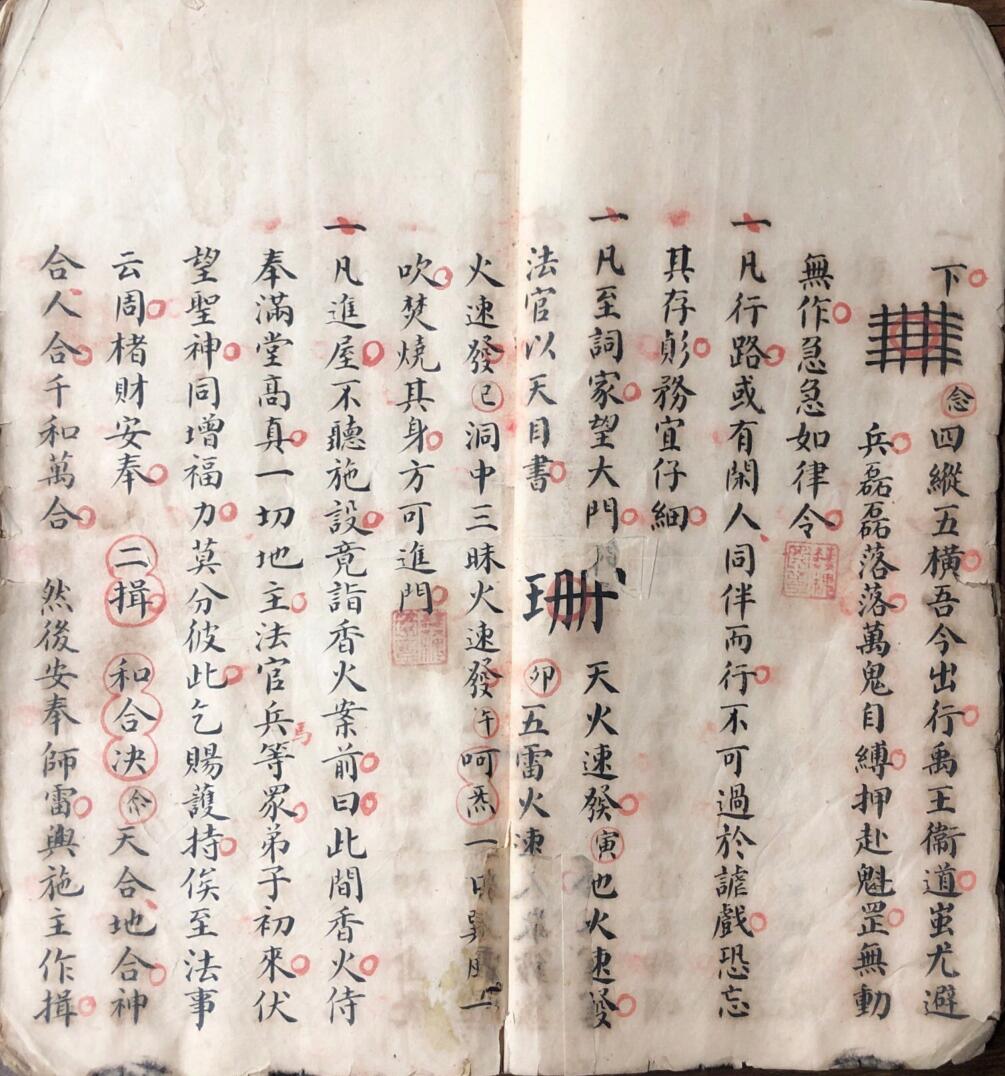 下念四縱五横吾今出行禹王衞道蚩尤避
兵磊磊落落萬鬼自縛押赴魁罡無動
無作急急如律令
一凡行路或有閑人同伴而行不可過於謔戲恐忘
其存務宜仔細
一凡至詞家望大門天火速發寅地火速發
法官以天目書卯五雷火速
火速發巳洞中三昧火速發午呵炁一
吹焚燒其身方可進門
一凡進屋不聽施設竟詣香火案前曰此間香火侍
奉滿堂髙真一切地主法官兵馬等眾弟子初來伏
望聖神同增福力莫分彼此乞賜護持俟至法事
云周楮財安奉 二揖 和合决 念天合地合神
合人合千和萬合 然後安奉師雷與施主作揖